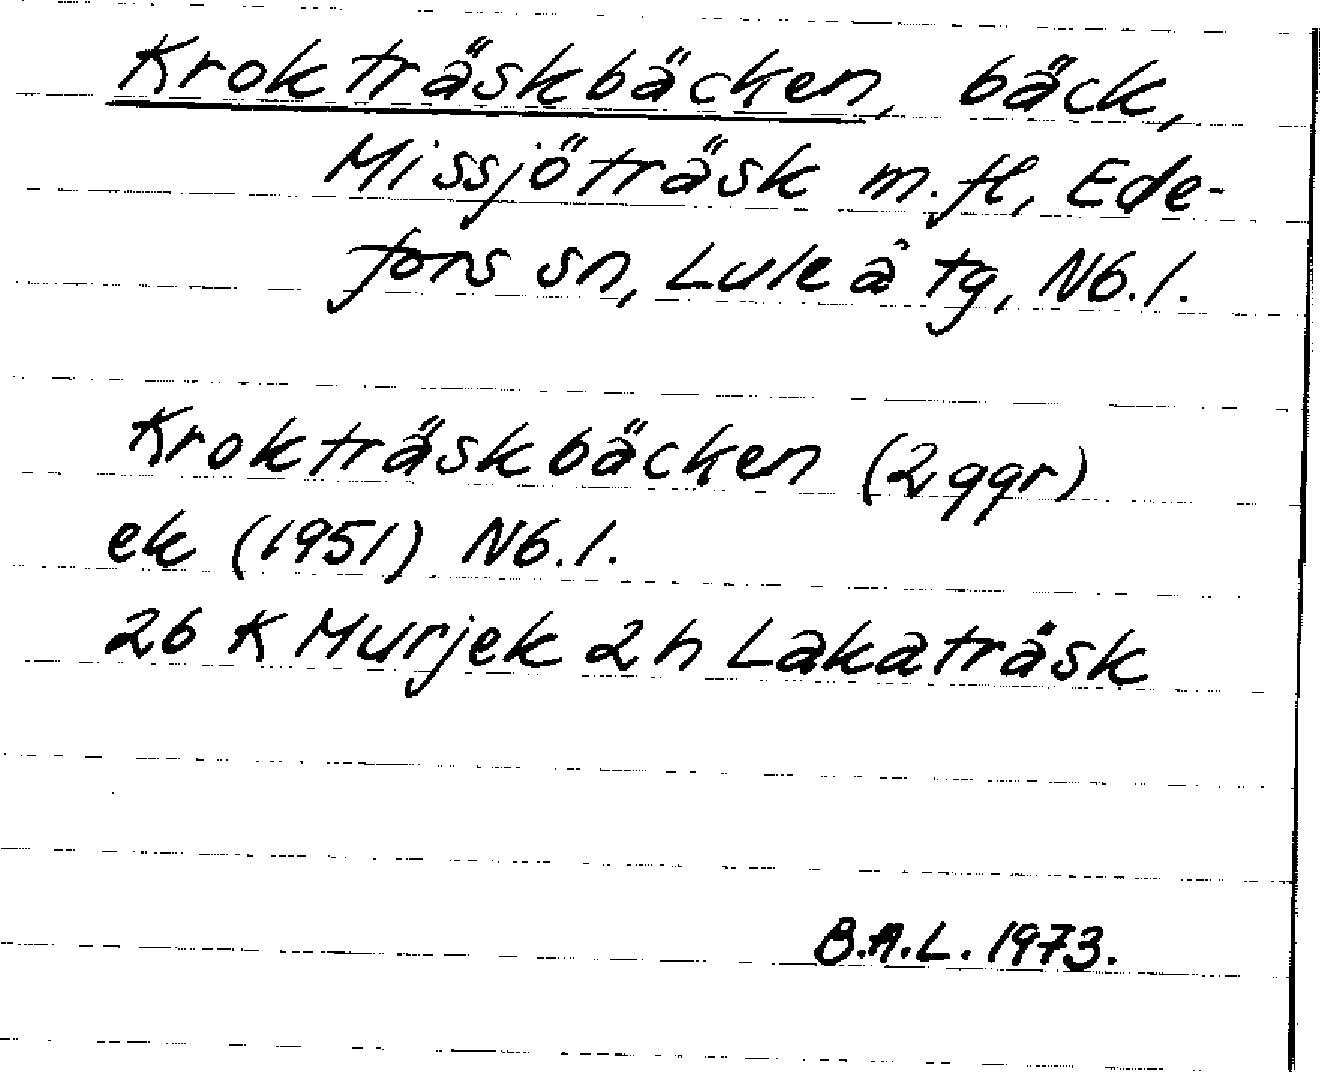 Krokträskbäcken, bäck,
Missjöträsk m.fl, Ede-
fors sn, Luleå tg, Nb.l.
Krokträskbäcken (2 ggr)
ek (1951) Nb.l.
26 K Murjek 2h Lakaträsk
B.A.L. 1973.